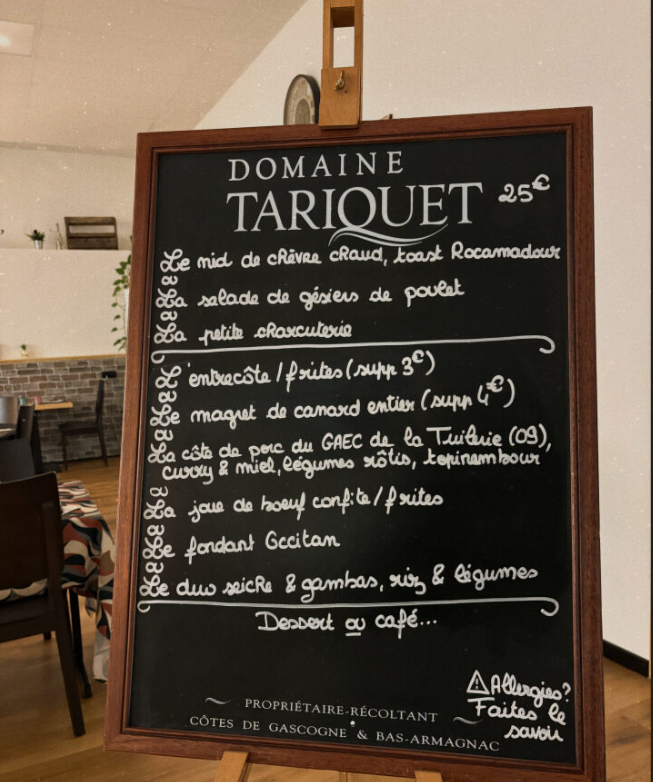 DOMAINE
TARIQUET 25€
Le nid de chèvre chaud, toast Rocamadour
&
La salade de gésiers de poulet
&
La petite charcuterie
L'entrecôte / frites (supp 3€)
&
Le magret de canard entier (supp 4€)
&
La côte de porc du GAEC de la Tuilerie (09),
curry & miel, légumes rôtis, topinambour
&
La joue de boeuf confite / frites
&
Le fondant Occitan
&
Le duo seiche & gambas, riz & légumes
Dessert ou café...
⚠ Allergies?
Faites le
savoir
PROPRIÉTAIRE-RÉCOLTANT
CÔTES DE GASCOGNE & BAS-ARMAGNAC